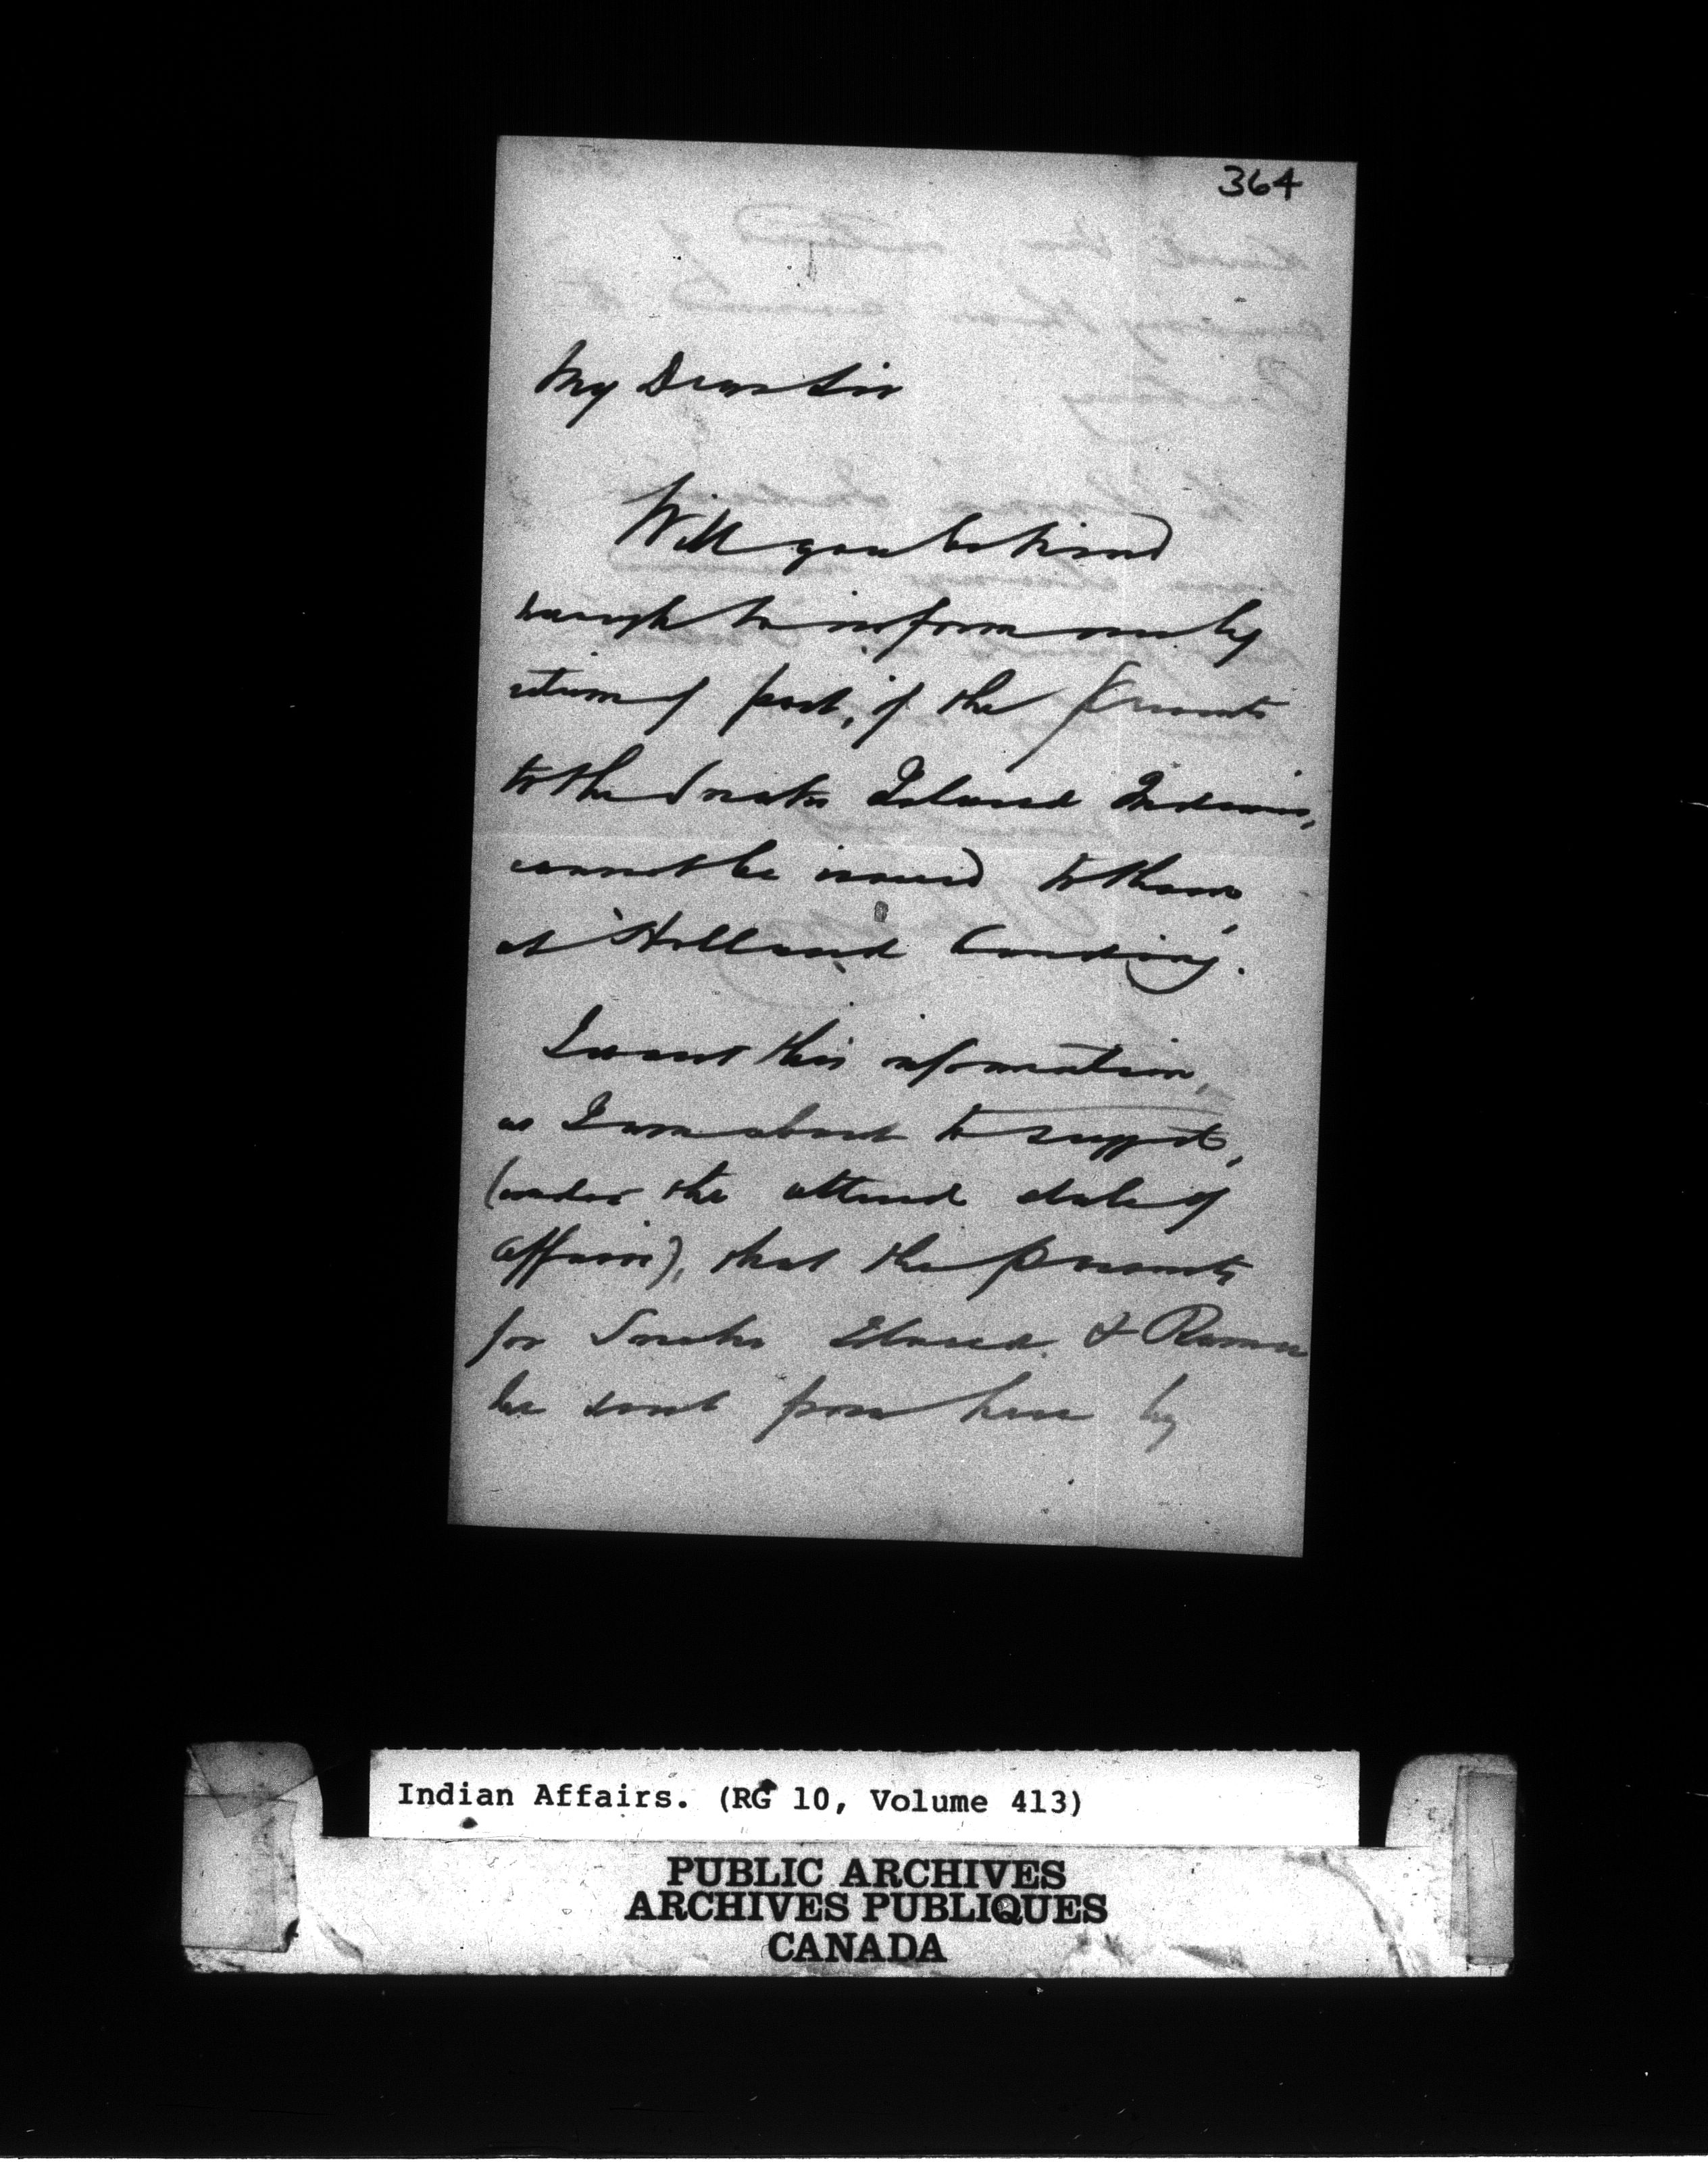 364
My Dear Sir
Will you be kind
enough to inform me by
return of post, if the Presents
to the Snake Island Indians,
cannot be issued to them,
at Holland Landing.
I want this information,
as I am about to suggest,
(under the altered state of
affairs), that the Presents
for Snake Island & Rama
be sent from here by
Indian Affairs. (RG 10, Volume 413)
PUBLIC ARCHIVES
ARCHIVES PUBLIQUES
CANADA